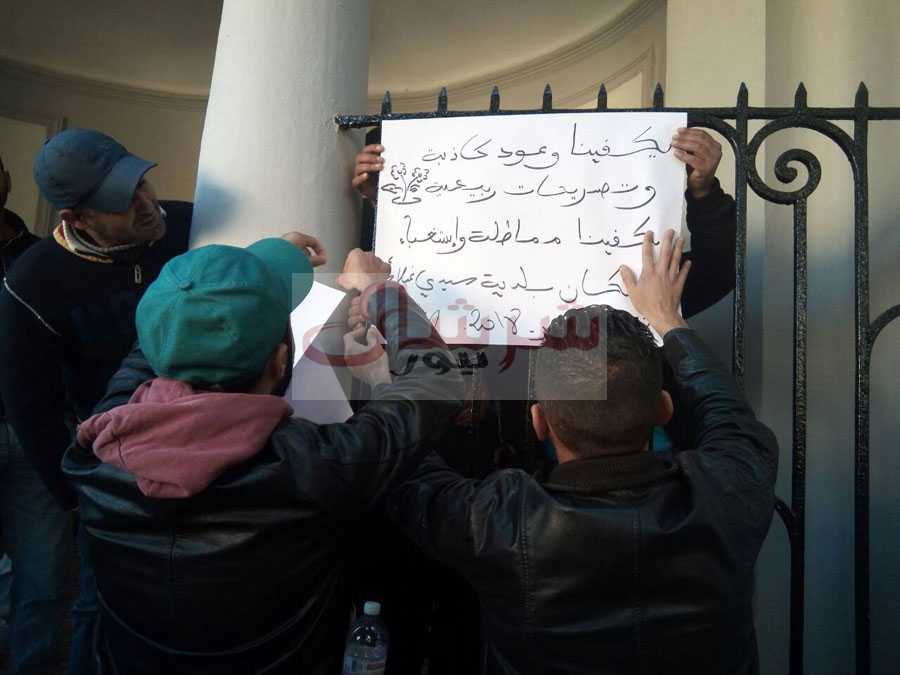 يكفينا وعود كاذبة
وتصريحات ربيعية
يكفينا مماطلة وإستغباء
سكان بلدية سيدي غيلاس
2018
شرشال
نيوز